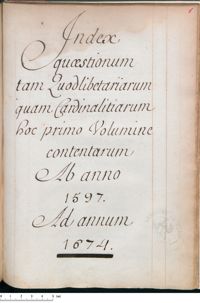 Index
quæstionum
tam Quodlibetariarum
quam Cardinalitiarum
hoc primo Volumine
contentarum
Ab anno
1597.
Ad annum
1674.